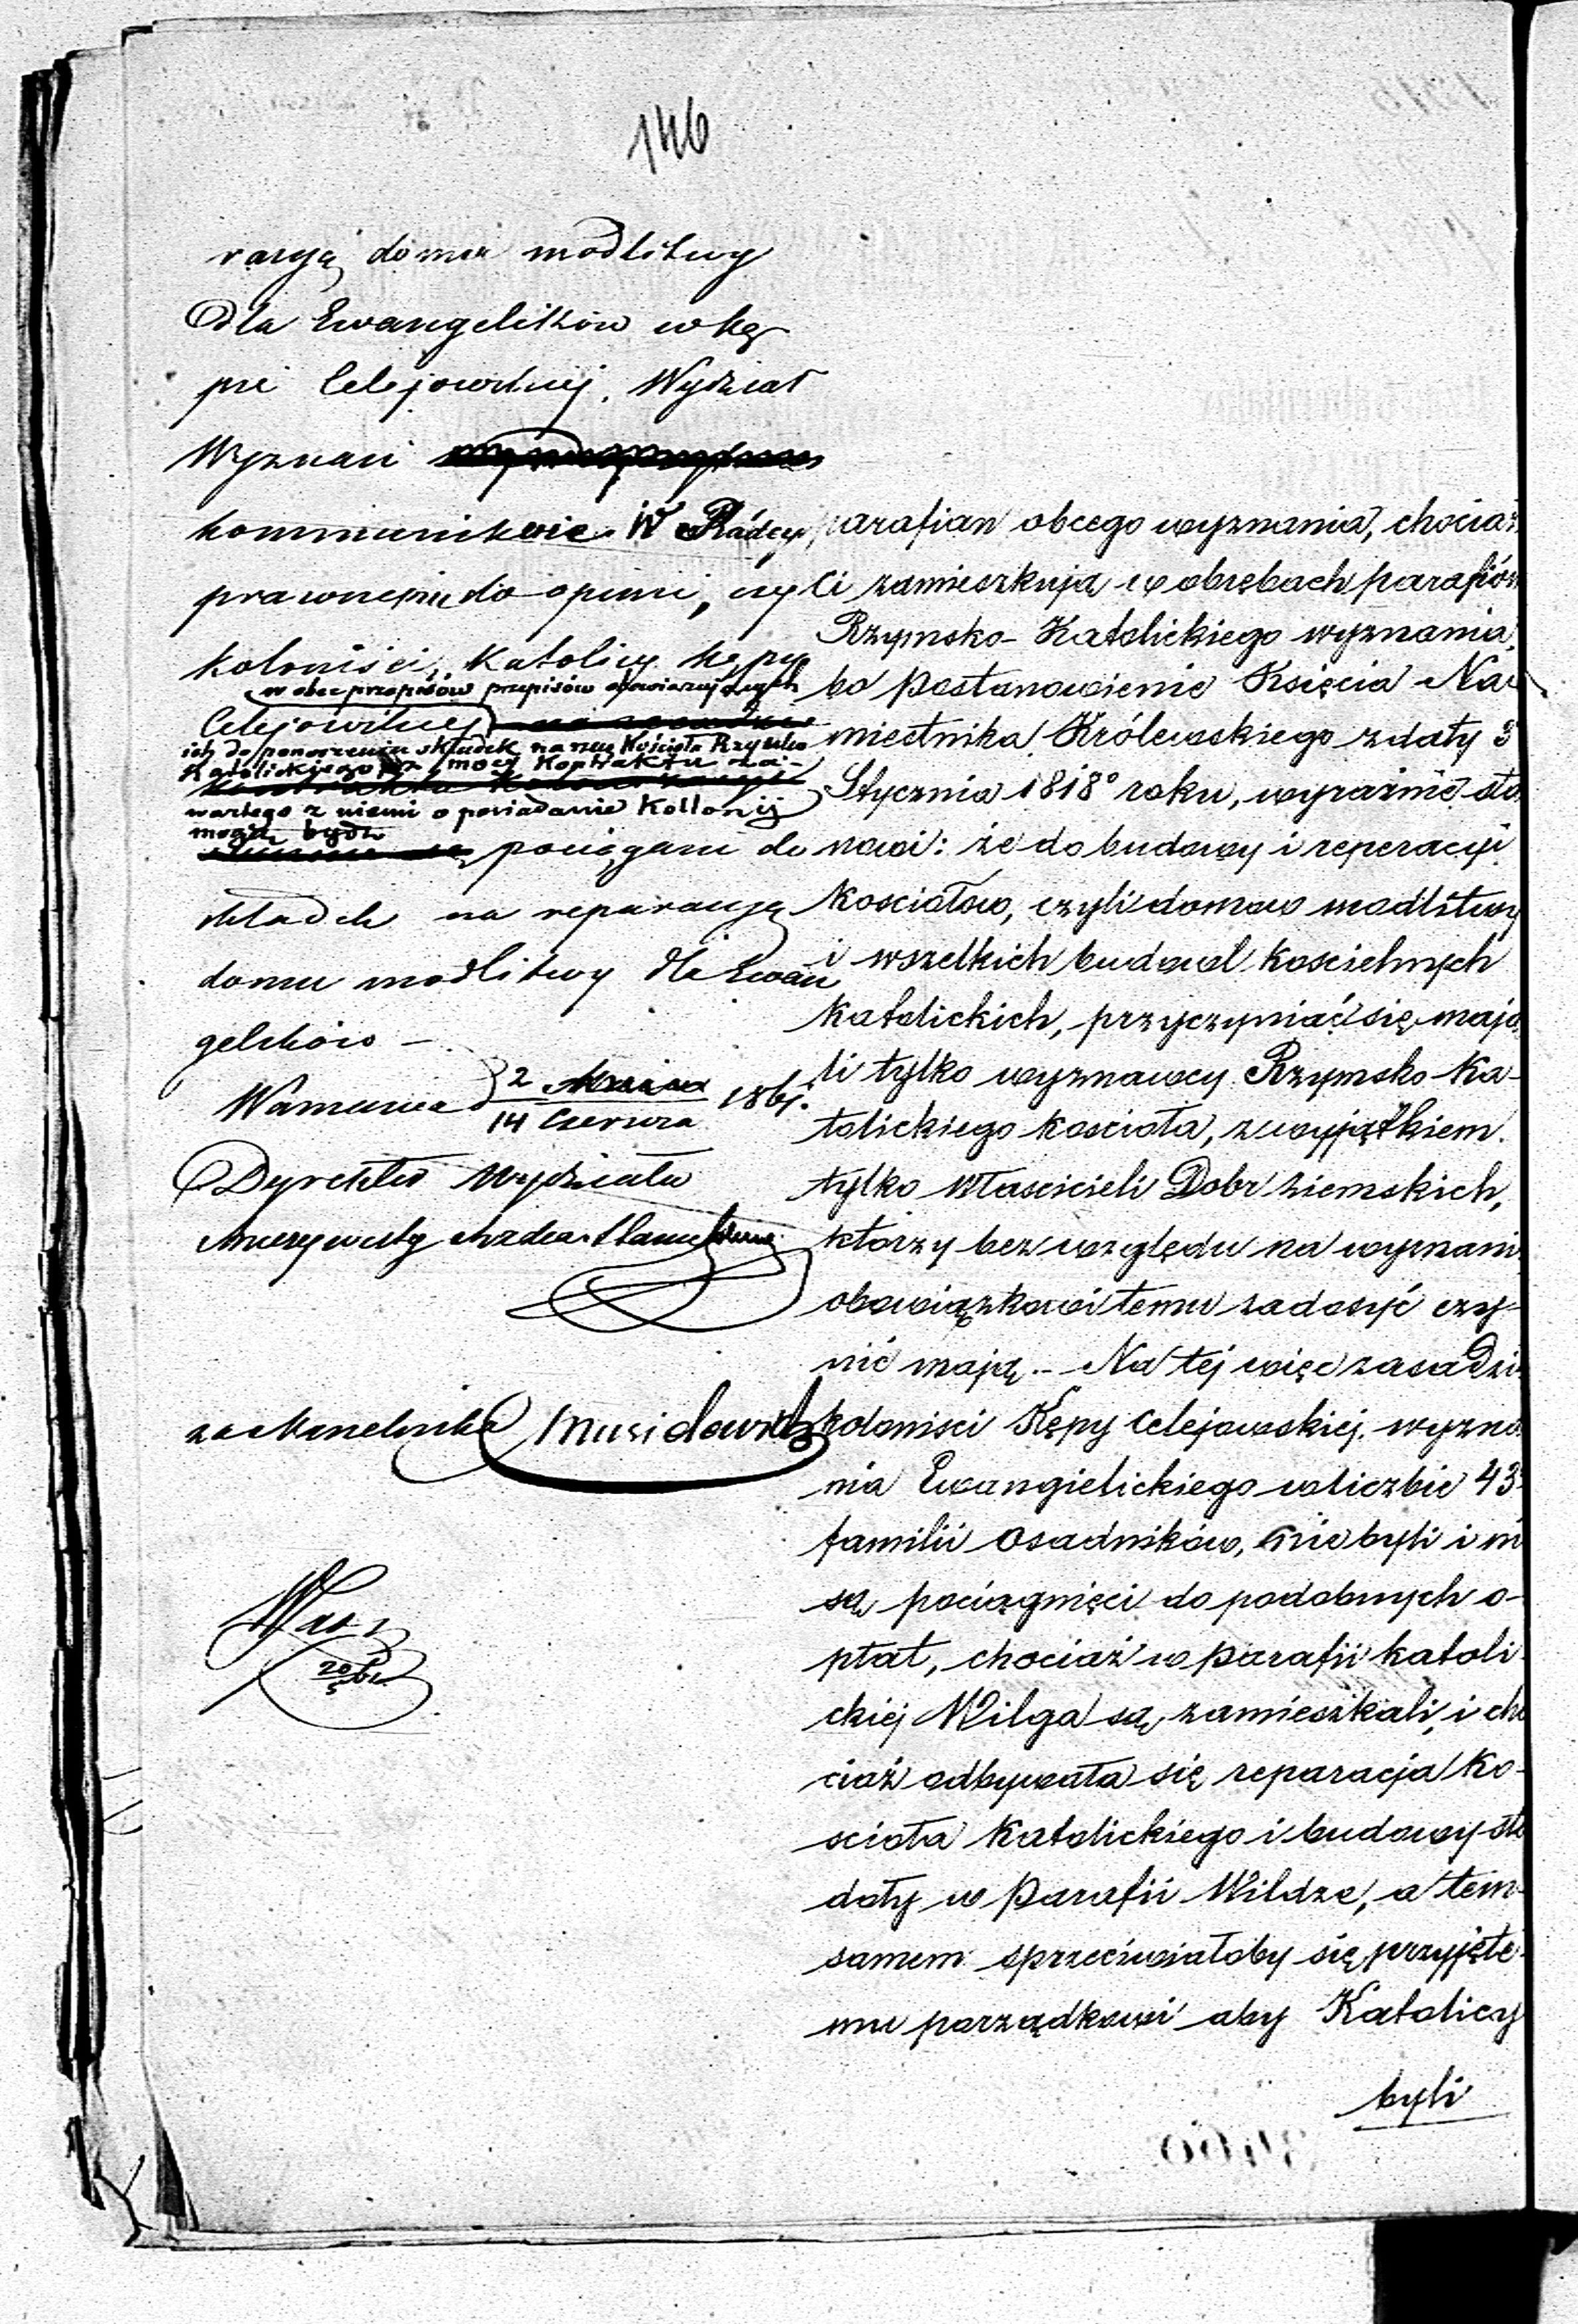 146
racyą domu modlitwy
dla Ewangelików w Kę
pie Celejowskiej, Wydział
Wyznań
kommunikuje W Radcy
prawnemu do opinii, czy
koloniści, Katolicy Kępy
w obec przepisów przepisów obowiązujących
Celejowskiej
ich do ponoszenia składek na rzecz Kościoła Rzymsko
Katolickiego mocy Kontraktu za-
wartego z niemi o posiadanie Kollonij
mogą być
pociągani do
składek na reparacyą
domu modlitwy dla Ewan
gelików —
Warszawa d 2/14 Czerwca 1861.
Dyrektor Wydziału
Rzeczywisty Radca Stanu
za Naczelnika
20/5 61
parafian obcego wyznania, chociaż
ci zamieszkują w obrębach parafiów
Rzymsko-Katolickiego wyznania,
bo Postanowienie Księcia Na
miestnika Królewskiego z daty 3
Stycznia 1818º roku, wyraźnie sta
nowi: że do budowy i reperacyi
Kosciołów, czyli domów modlitwy
i wszelkich budowl Koscielnych
Katolickich, przyczyniać się mają
li tylko wyznawcy Rzymsko Ka-
tolickiego koscioła, z wyjątkiem
tylko własciceli Dobr ziemskich,
którzy bez względu na wyznani
obowiązkowi temu zadosyć czy-
nić mają.- Na tej więc zasadzi
kolonisci Kępy Celejowskiej wyzna
nia Ewangielickiego w liczbie 43
familii Osadników, nie byli i ni
są pociągnięci do podobnych o-
płat, chociaż w parafii katoli
ckiej Wilga są zamieszkali, i cho
ciaż odbywała się reparacja Ko-
scioła Katolickiego i budowy sto
doły w Parafii Wildze, a tem-
samem sprzeciwiałoby się przyjęte-
mu porządkowi aby Katolicy
byli